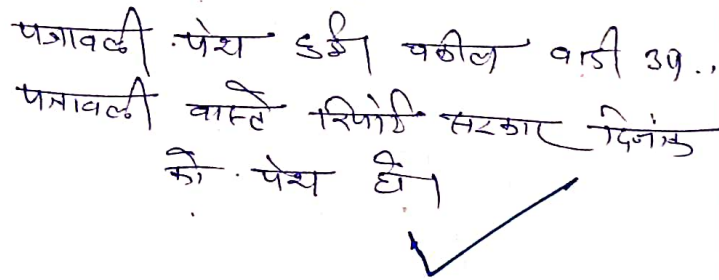 पत्रावली पेश हुई। वकील वादी उप..
पत्रावली वास्ते रिपोर्ट सरकार दिनांक
को पेश हो।